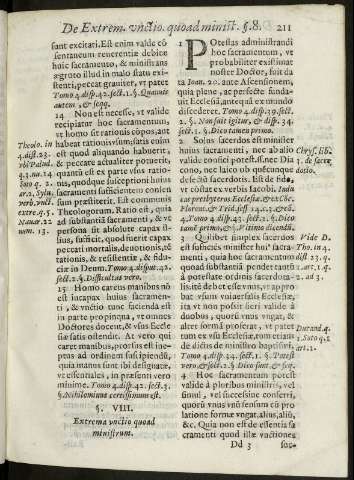 De Extrem. vnctio. quoad minist. §.8. 211
sant excitari. Est enim valde cō
sentaneum reuerentiæ debitæ
huic sacramento, & ministrans
ægroto illud in malo statu exi-
stenti, peccat grauiter, vt patet
Tomo 4. disp. 42. sect. 1. §. Quando
autem, & seqq.
14 Non est necesse, vt valide
recipiatur hoc sacramentum,
vt homo sit rationis cōpos, aut
habeat rationis vsum: satis enim
est quod aliquando habuerit,
vt peccare actualiter potuerit,
quantū est ex parte vsus ratio-
nis, quodque susceptioni huius
sacramenti sufficientem consen
sum præstiterit. Est communis
Theologorum. Ratio est, quia
ad substantiā sacramenti, & vt
persona sit absolute capax il-
lius, sufficit, quod fuerit capax
peccati mortalis, deuotionis, rō
rationis, & resistentiæ, & fidu-
ciæ in Deum. Tomo 4. disput. 42.
sect. 2. §. Difficultas vero.
15 Homo carens manibus nō
est incapax huius sacramen-
ti, & vnctio tunc facienda est
in parte propinqua, vt omnes
Doctores docent, & vsus Eccle
siæ satis ostendit. At vero qui
caret manibus, prorsus est inep-
ptus ad ordinem suscipiendū,
quia manus sunt ibi designatæ,
vt essentiales, in præsenti vero
minime. Tomo 4. disp. 42. sect. 3.
§. Nihilominus certissimum est.
§. VIII.
Extrema vnctio quoad
ministrum.
Theolo. in
4. dist. 23.
vbi Palud.
q. 3. nu. 14
Soto q. 2.
ar. 2. Sylu.
verb. vnct.
extre. q. 5.
Nauar. 22
num. 13.
1 POtestas administrandi
hoc sacramentum, vt
probabiliter existimat
noster Doctor, fuit da
ta Ioan. 20. ante Ascensionem,
quia plene, ac perfecte funda-
uit Ecclesiā, antequā ex mundo
discederet. Tomo 4. disp. 39. sect.
2. §. Non sufficit igitur, & disp. 34.
sect. 1. §. Dico tamen primo.
2 Solus sacerdos est minister
huius sacramenti, nec ab alio
valide confici potest. ss. nec Dia
cono, nec laico ob quēcunque
defectū sacerdotis. Est de fide,
vt cōstat ex verbis Iacobi. Indu
cat presbyteros Ecclesiæ, & ex Chr.
Floren. & Trid. sess 14. c. 3. & cā.
4. Tomo 4. disp. 43. sect. 1. §. Dico
tamē primo, & §. Vltimo dicendū.
3 Quilibet simplex sacerdos
est sufficiens minister hui9 sacra-
menti, quia hoc sacramentum
quoad substantiā pendet tantū
à potestate ordinis sacerdota-
lis, licite debet esse vnus, vt pro-
bat vsum vniuersalis Ecclesiæ,
ita vt non possit fieri valide à
duobus, quorū vnus vngat, &
alter formā proferat, vt patet
tum ex vsu Ecclesiæ, tum etiam
ex dictis de ministro baptismi.
Tomo 4. disp. 34. sect. 1. §. Patet
vero & sect. 2. §. Dico sent. & seq.
4 Hoc sacramentum potest
valide à pluribus ministris, vel
simul, vel successiue conferri,
quorū vnus vnū sensum cū pro
latione formæ vngat, alius, aliū,
&c. Quia non est de essentia sa
cramenti quod illæ vnctiones
Dd 3 suc-
Chrys. lib.
3. de sacer
dotio.
Vide D.
Tho. in 4.
dist. 23. q.
2. art. 1. q.
1. ad 3.
Durand. q.
3. Soto q. 2
art. 2.